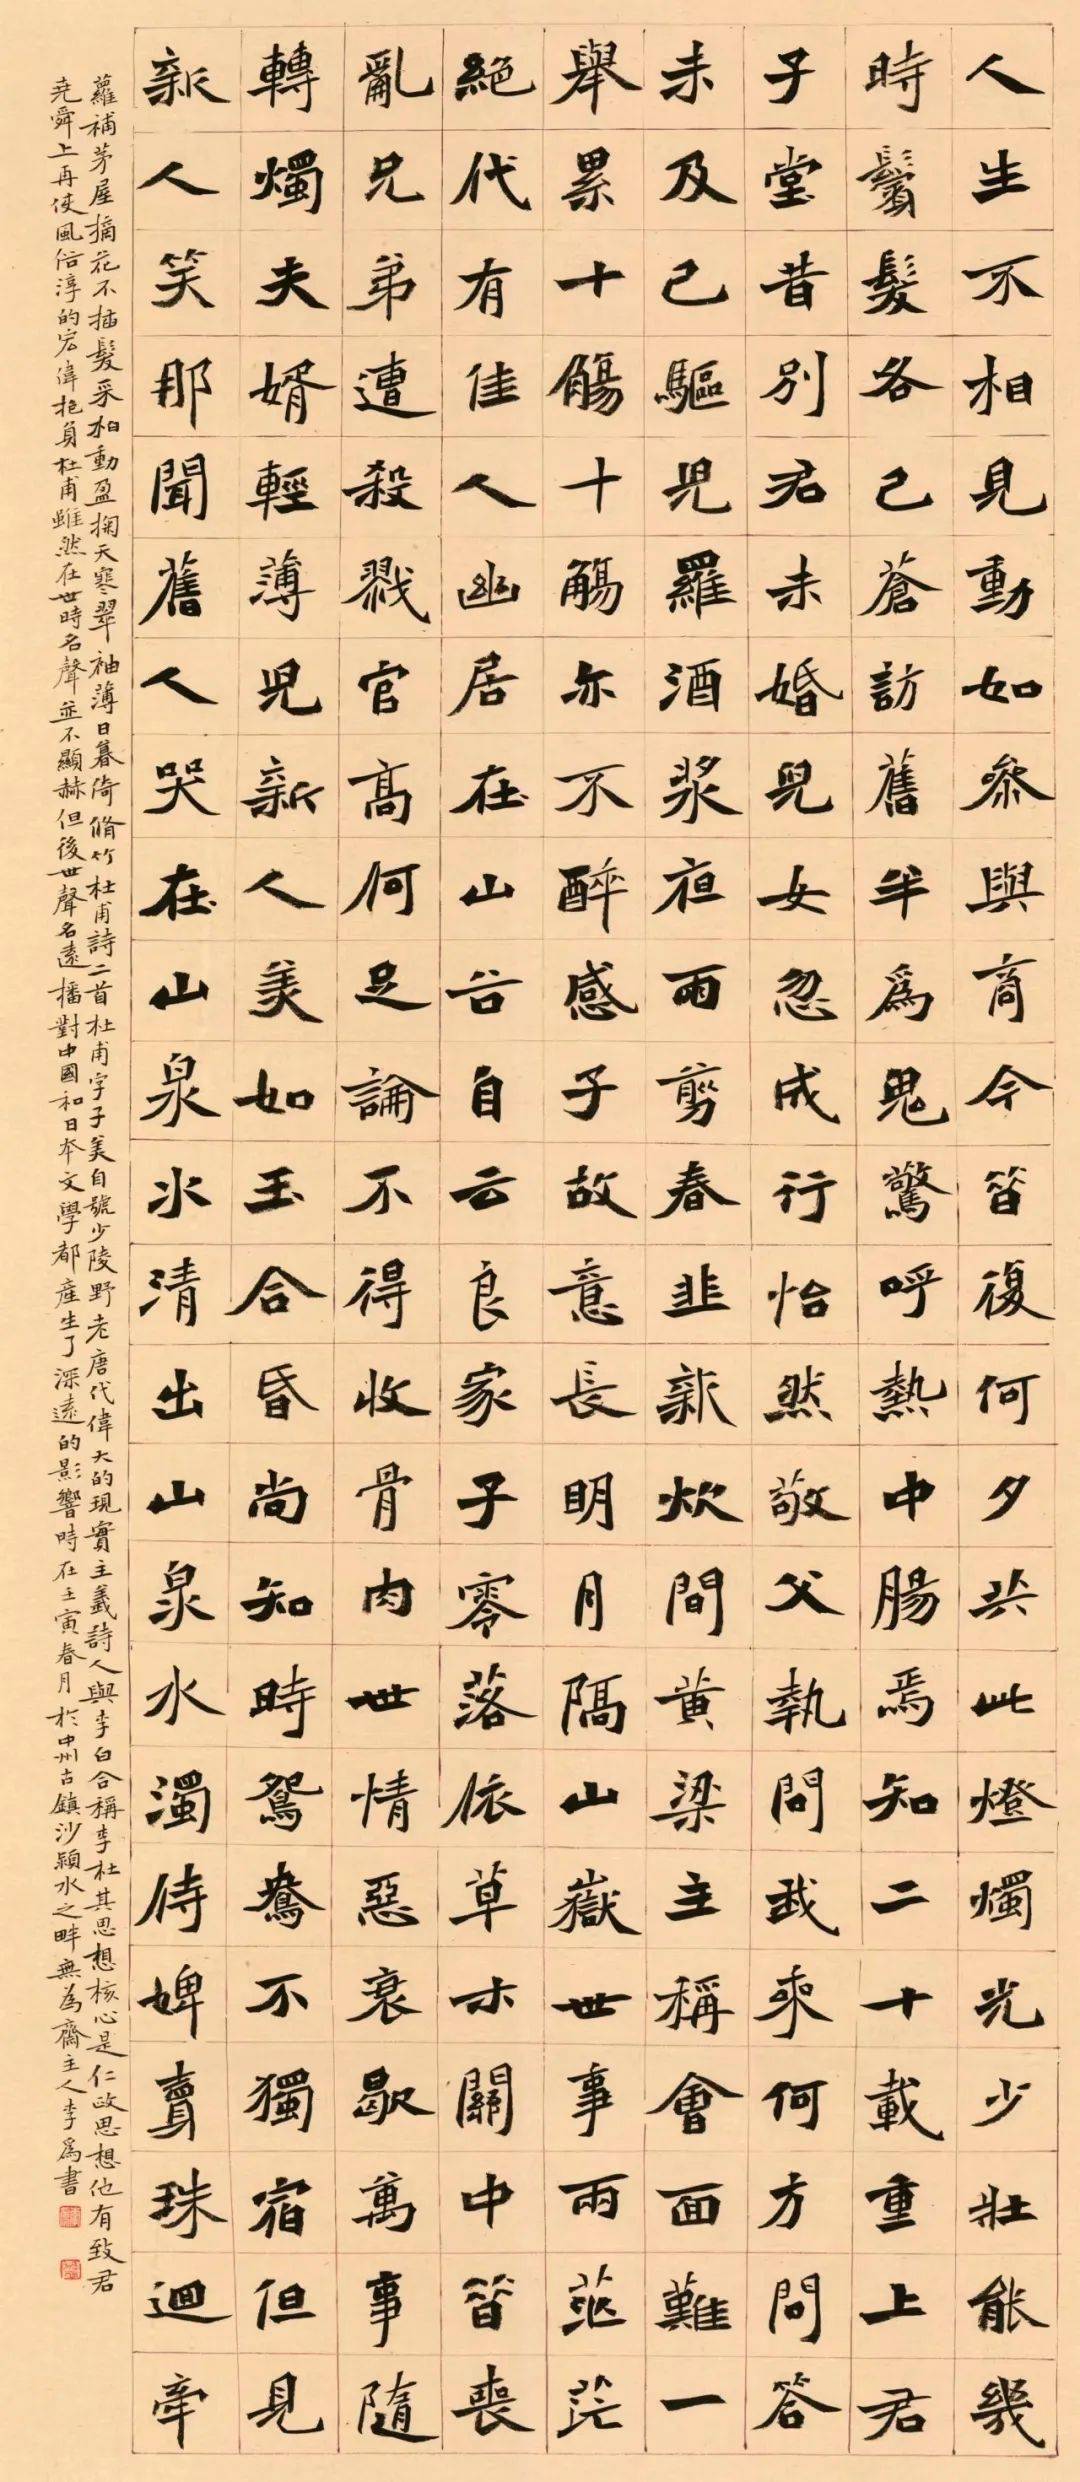 人生不相見動如參與商今皆復何夕共此燈燭光少壯能幾
時鬢髮各已蒼訪舊半為鬼驚呼熱中腸焉知二十載重上君
子堂昔別君未婚兒女忽成行怡然敬父執問我來何方問答
未及已驅兒羅酒漿夜雨剪春韭新炊間黃梁主稱會面難一
舉累十觴十觴亦不醉感子故意長明月隔山嶽世事兩茫茫
絕代有佳人幽居在山谷自云良家子零落依草木關中皆喪
亂兄弟遭殺戮官高何足論不得收骨肉世情惡衰歇萬事隨
轉燭夫婿輕薄兒新人美如玉合昏尚知時鴛鴦不獨宿但見
新人笑那聞舊人哭在山泉水清出山泉水濁侍婢賣珠迴牽
蘿補茅屋摘花不插髮采柏動盈掬天寒翠袖薄日暮倚脩竹杜甫詩二首杜甫字子美自號少陵野老唐代偉大的現實主義詩人與李白合稱李杜其思想核心是仁政思想他有致君
堯舜上再使風俗淳的宏偉抱負杜甫雖然在世時名聲並不顯赫但後世聲名遠播對中國和日本文學都產生了深遠的影響時在壬寅春月於中州古鎮沙潁水之畔無為齋主人李為書